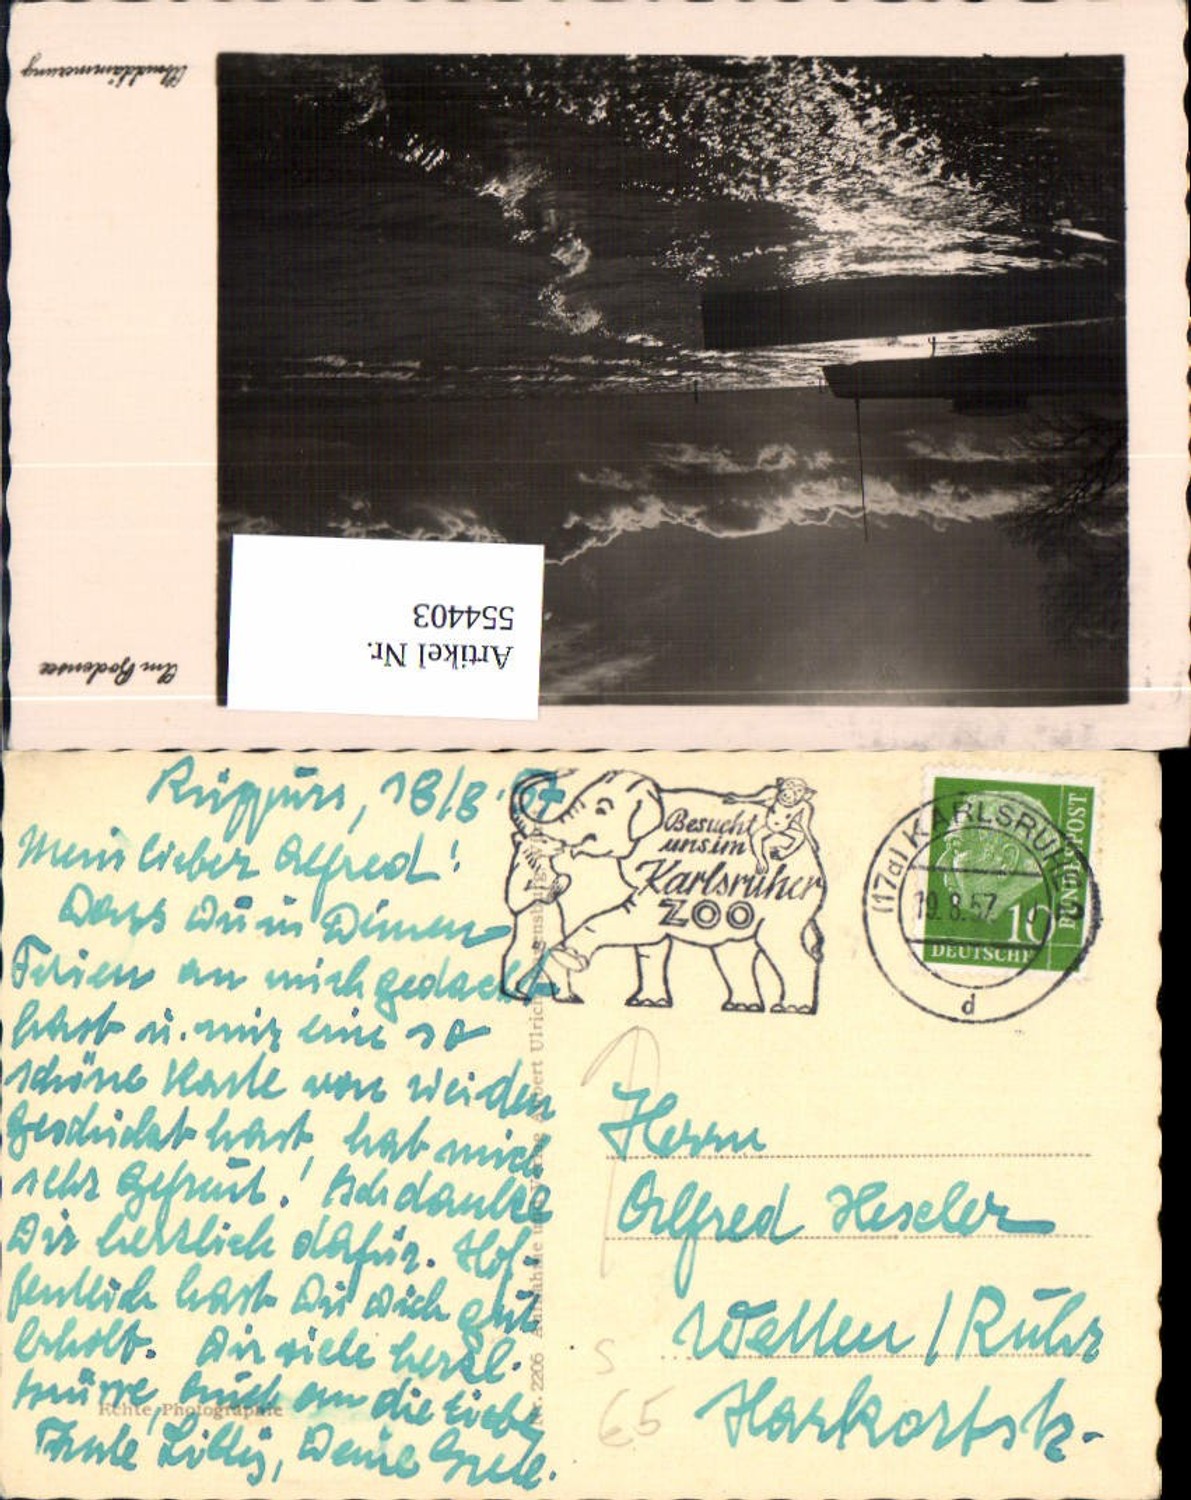 Abenddämmerung
Am Bodensee
Artikel Nr.
554403
Rüppurr, 18/8. 57
Mein lieber Alfred!
Dass Du in Deinen
Ferien an mich gedacht
hast u. mir eine so
schöne Karte von
geschickt hast, hat mich
sehr gefreut! Ich danke
Dir herzlich dafür. Hof-
fentlich hast Du Dich gut
erholt. Dir viele herzl.
Grüsse, auch an die liebe
Tante Lilly, Deine Gretl.
Echte Photographie
Nr. 2206 Aufnahme und Verlag Ulrich
Besucht
uns im
Karlsruher
ZOO
(17a) KARLSRUHE
19. 8. 57
d
10
DEUTSCHE
BUNDESPOST
Herrn
Alfred Heseler
Wetter / Ruhr
Harkortstr.
S
65